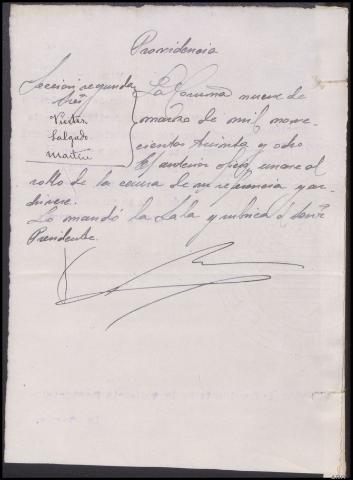 Providencia
Sección segunda
Sres
Victor
Salgado
Martin
La Coruña nueve de
marzo de mil nove-
cientos treinta y ocho
El anterior oficio unase al
rollo de la causa de su referencia y ar-
chivese.
Lo mandó la Sala y rubrica el Señor
Presidente.